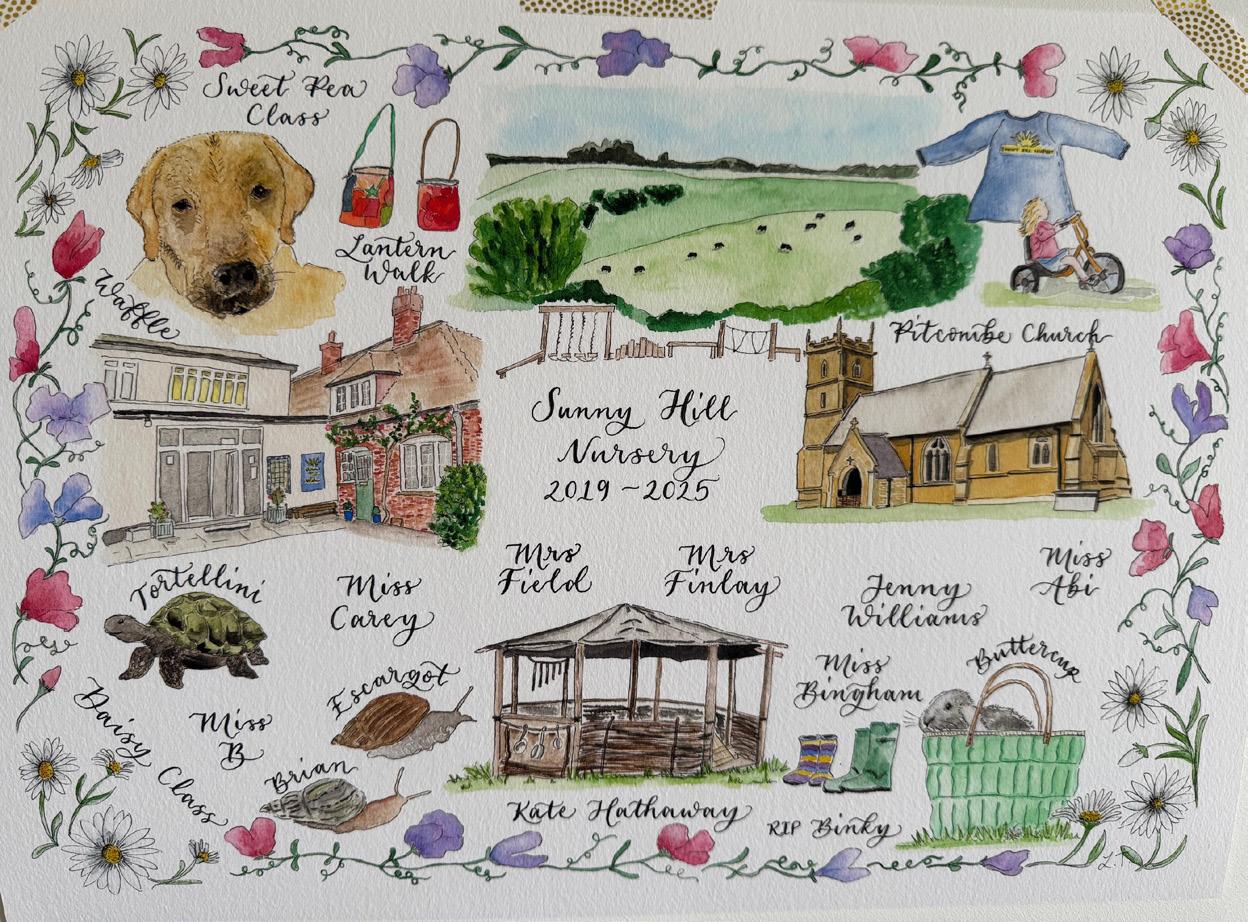 Sweet Pea
Class
Lantern
Walk
Waffle
Pitcombe Church
Sunny Hill
Nursery
2019 ~ 2025
Mrs
Field
Mrs
Finlay
Miss
Abi
Tortellini
Miss
Carey
Jenny
Williams
Escargot
Miss
Bingham
Buttercup
Daisy Class
Miss
B
Brian
Kate Hathaway
RIP Binky